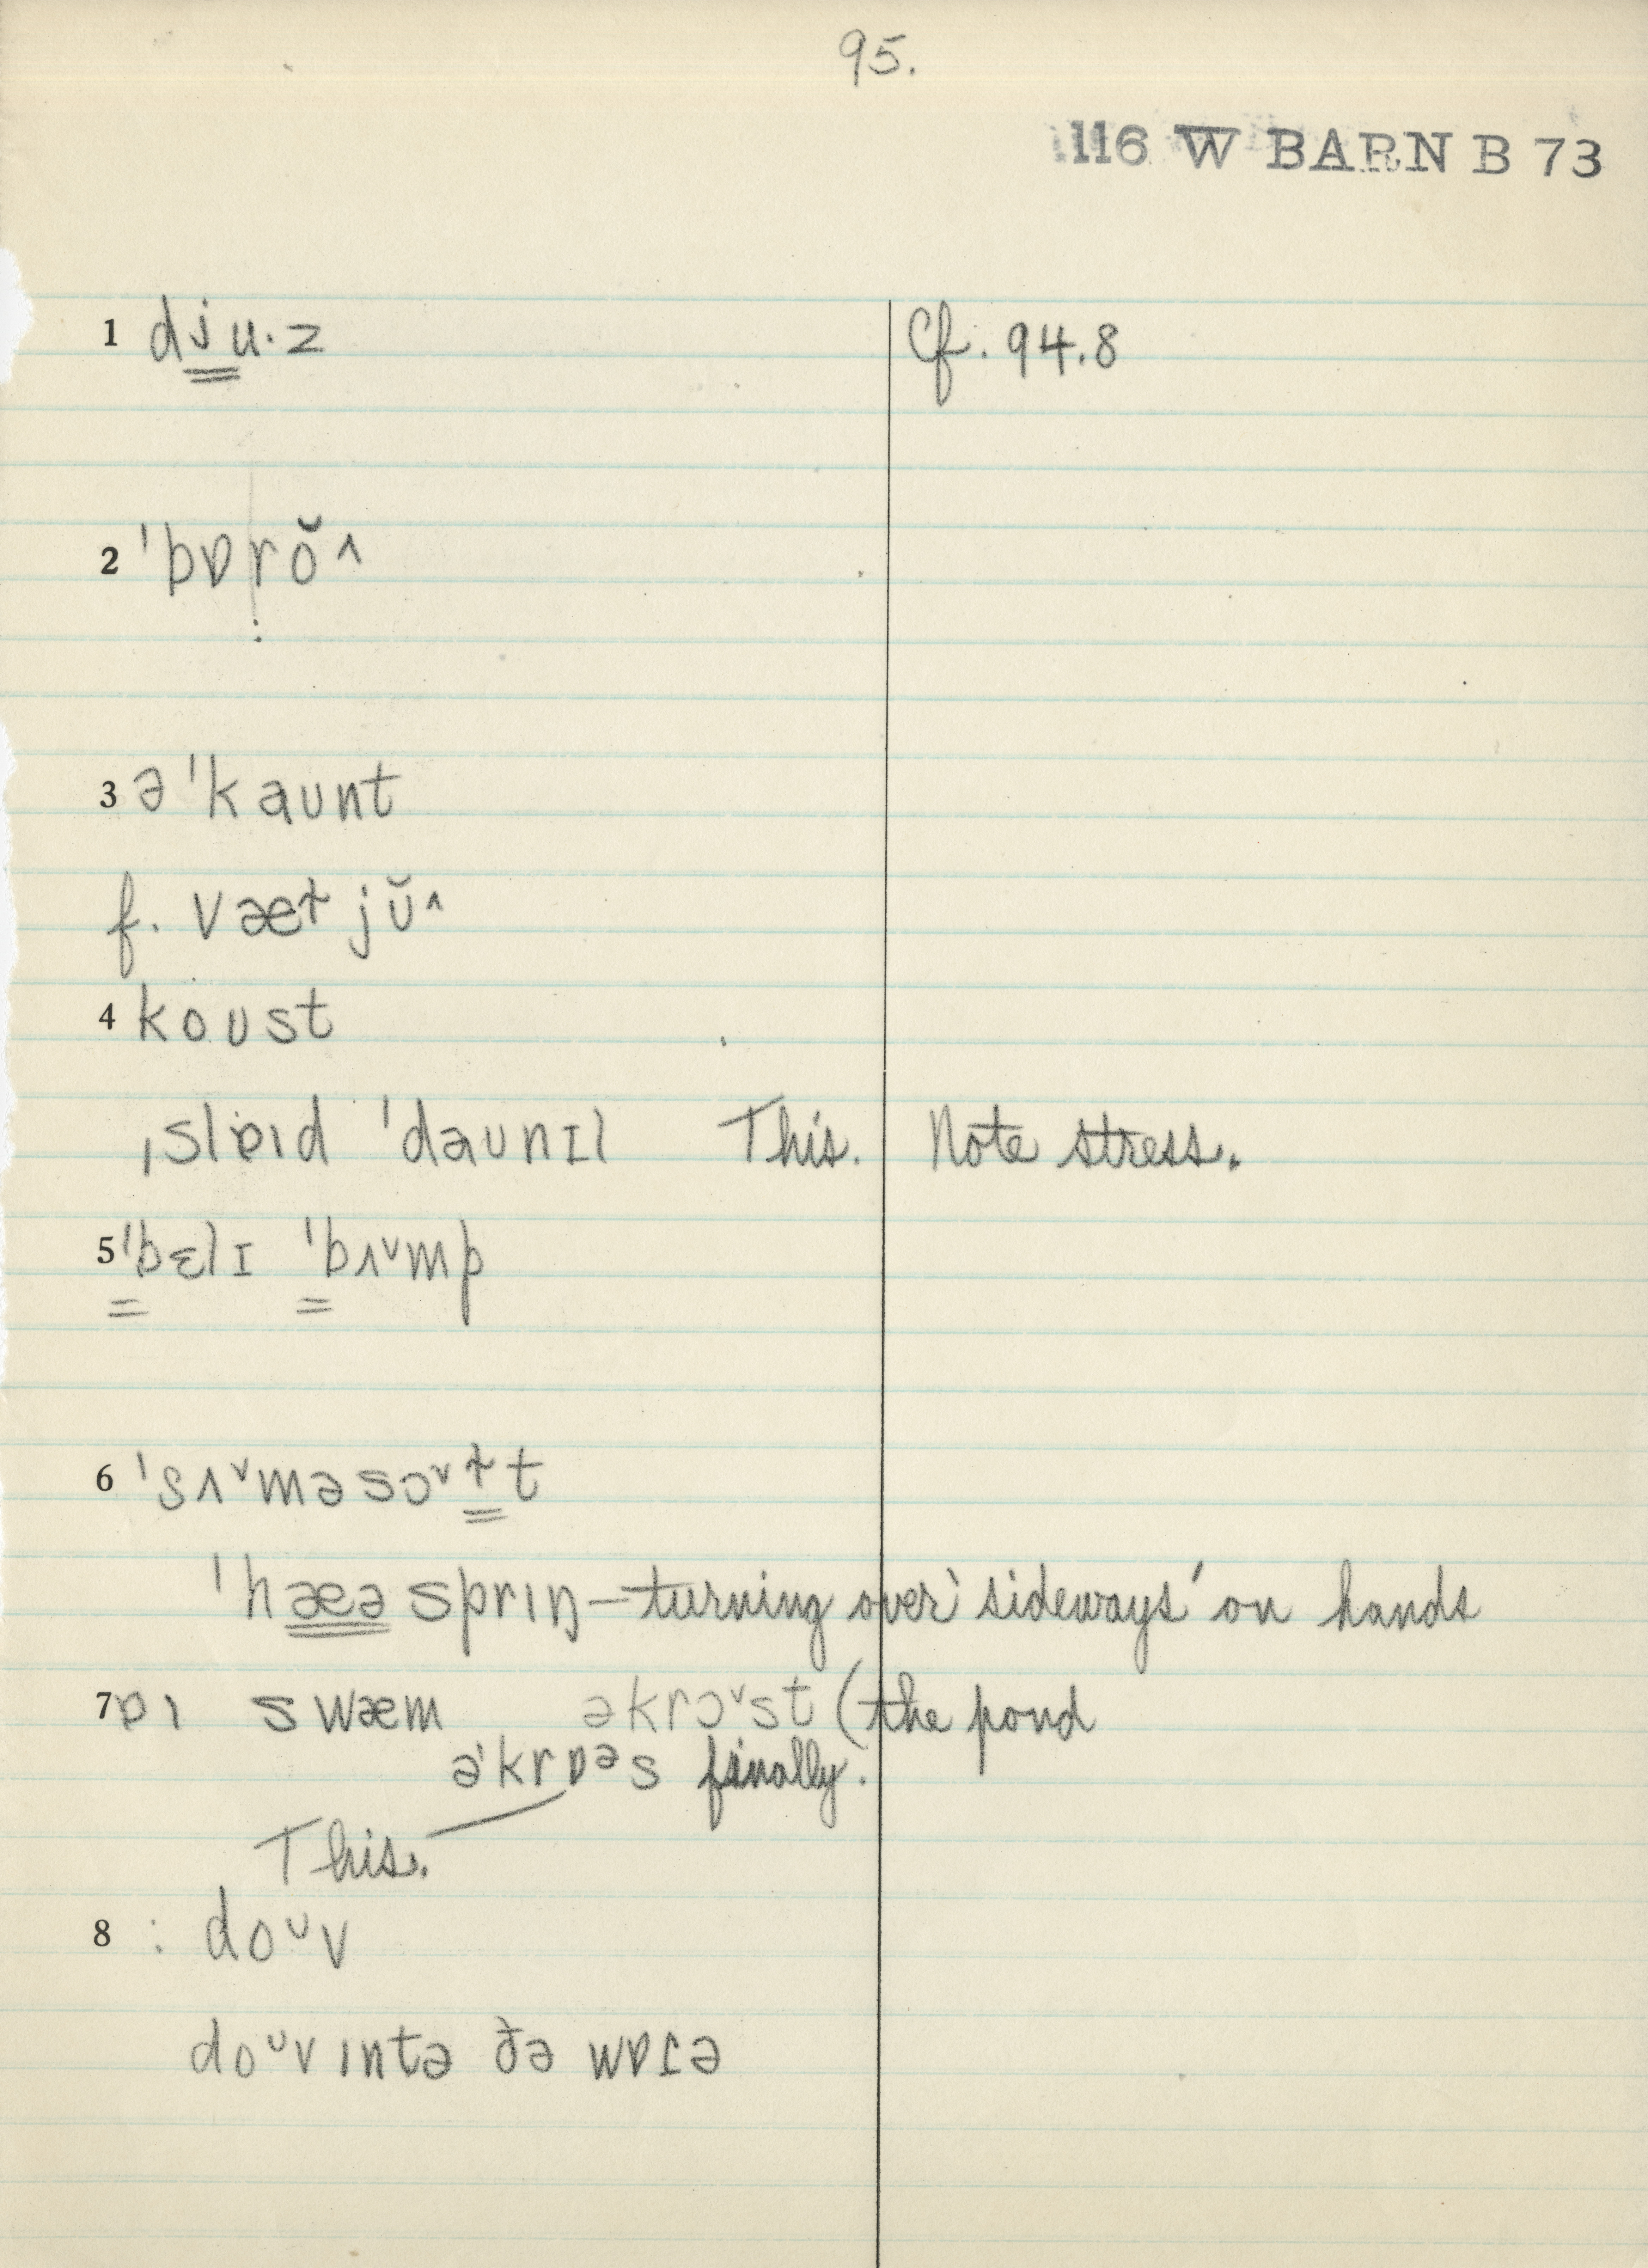 95.
116 W BARN B 73
1 dju·z Cf. 94.8
2 ˈbɒrŏ^
:
3 əˈkaunt
f. vætjŭ^
4 koust
ˌslɒɪd ˈdaunɪl This. Note stress.
5 ˈbɛlɪ ˈbʌᵛmp
6 ˈsʌᵛməsɔᵛɫt
ˈhæəsprɪŋ—turning over 'sideways' on hands
7 ɒɪ swæm əkrɔᵛst (the pond
əˈkrɒᵊs finally.
This.
8 : doᶸv
doᶸvɪntə ðə wɒɾə